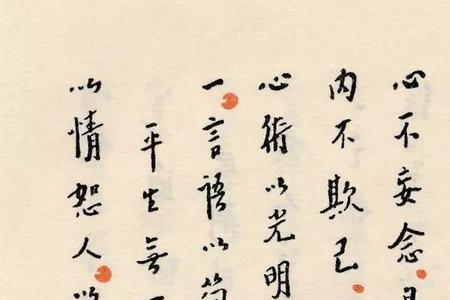 心不妄念
内不欺己
心術以光明
一言語以簡
平生無
以情恕人以